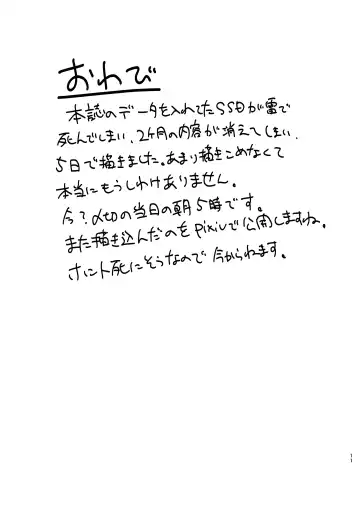 おわび
本誌のデータを入れてたSSDが雷で
死んでしまい、2ヶ月の内容が消えてしまい、
5日で描きました。あまり描きこめなくて
本当にもうしわけありません。
今?〆切の当日の朝5時です。
また描き込んだのをpixivで公開しますね。
死にそうなので今からねます。